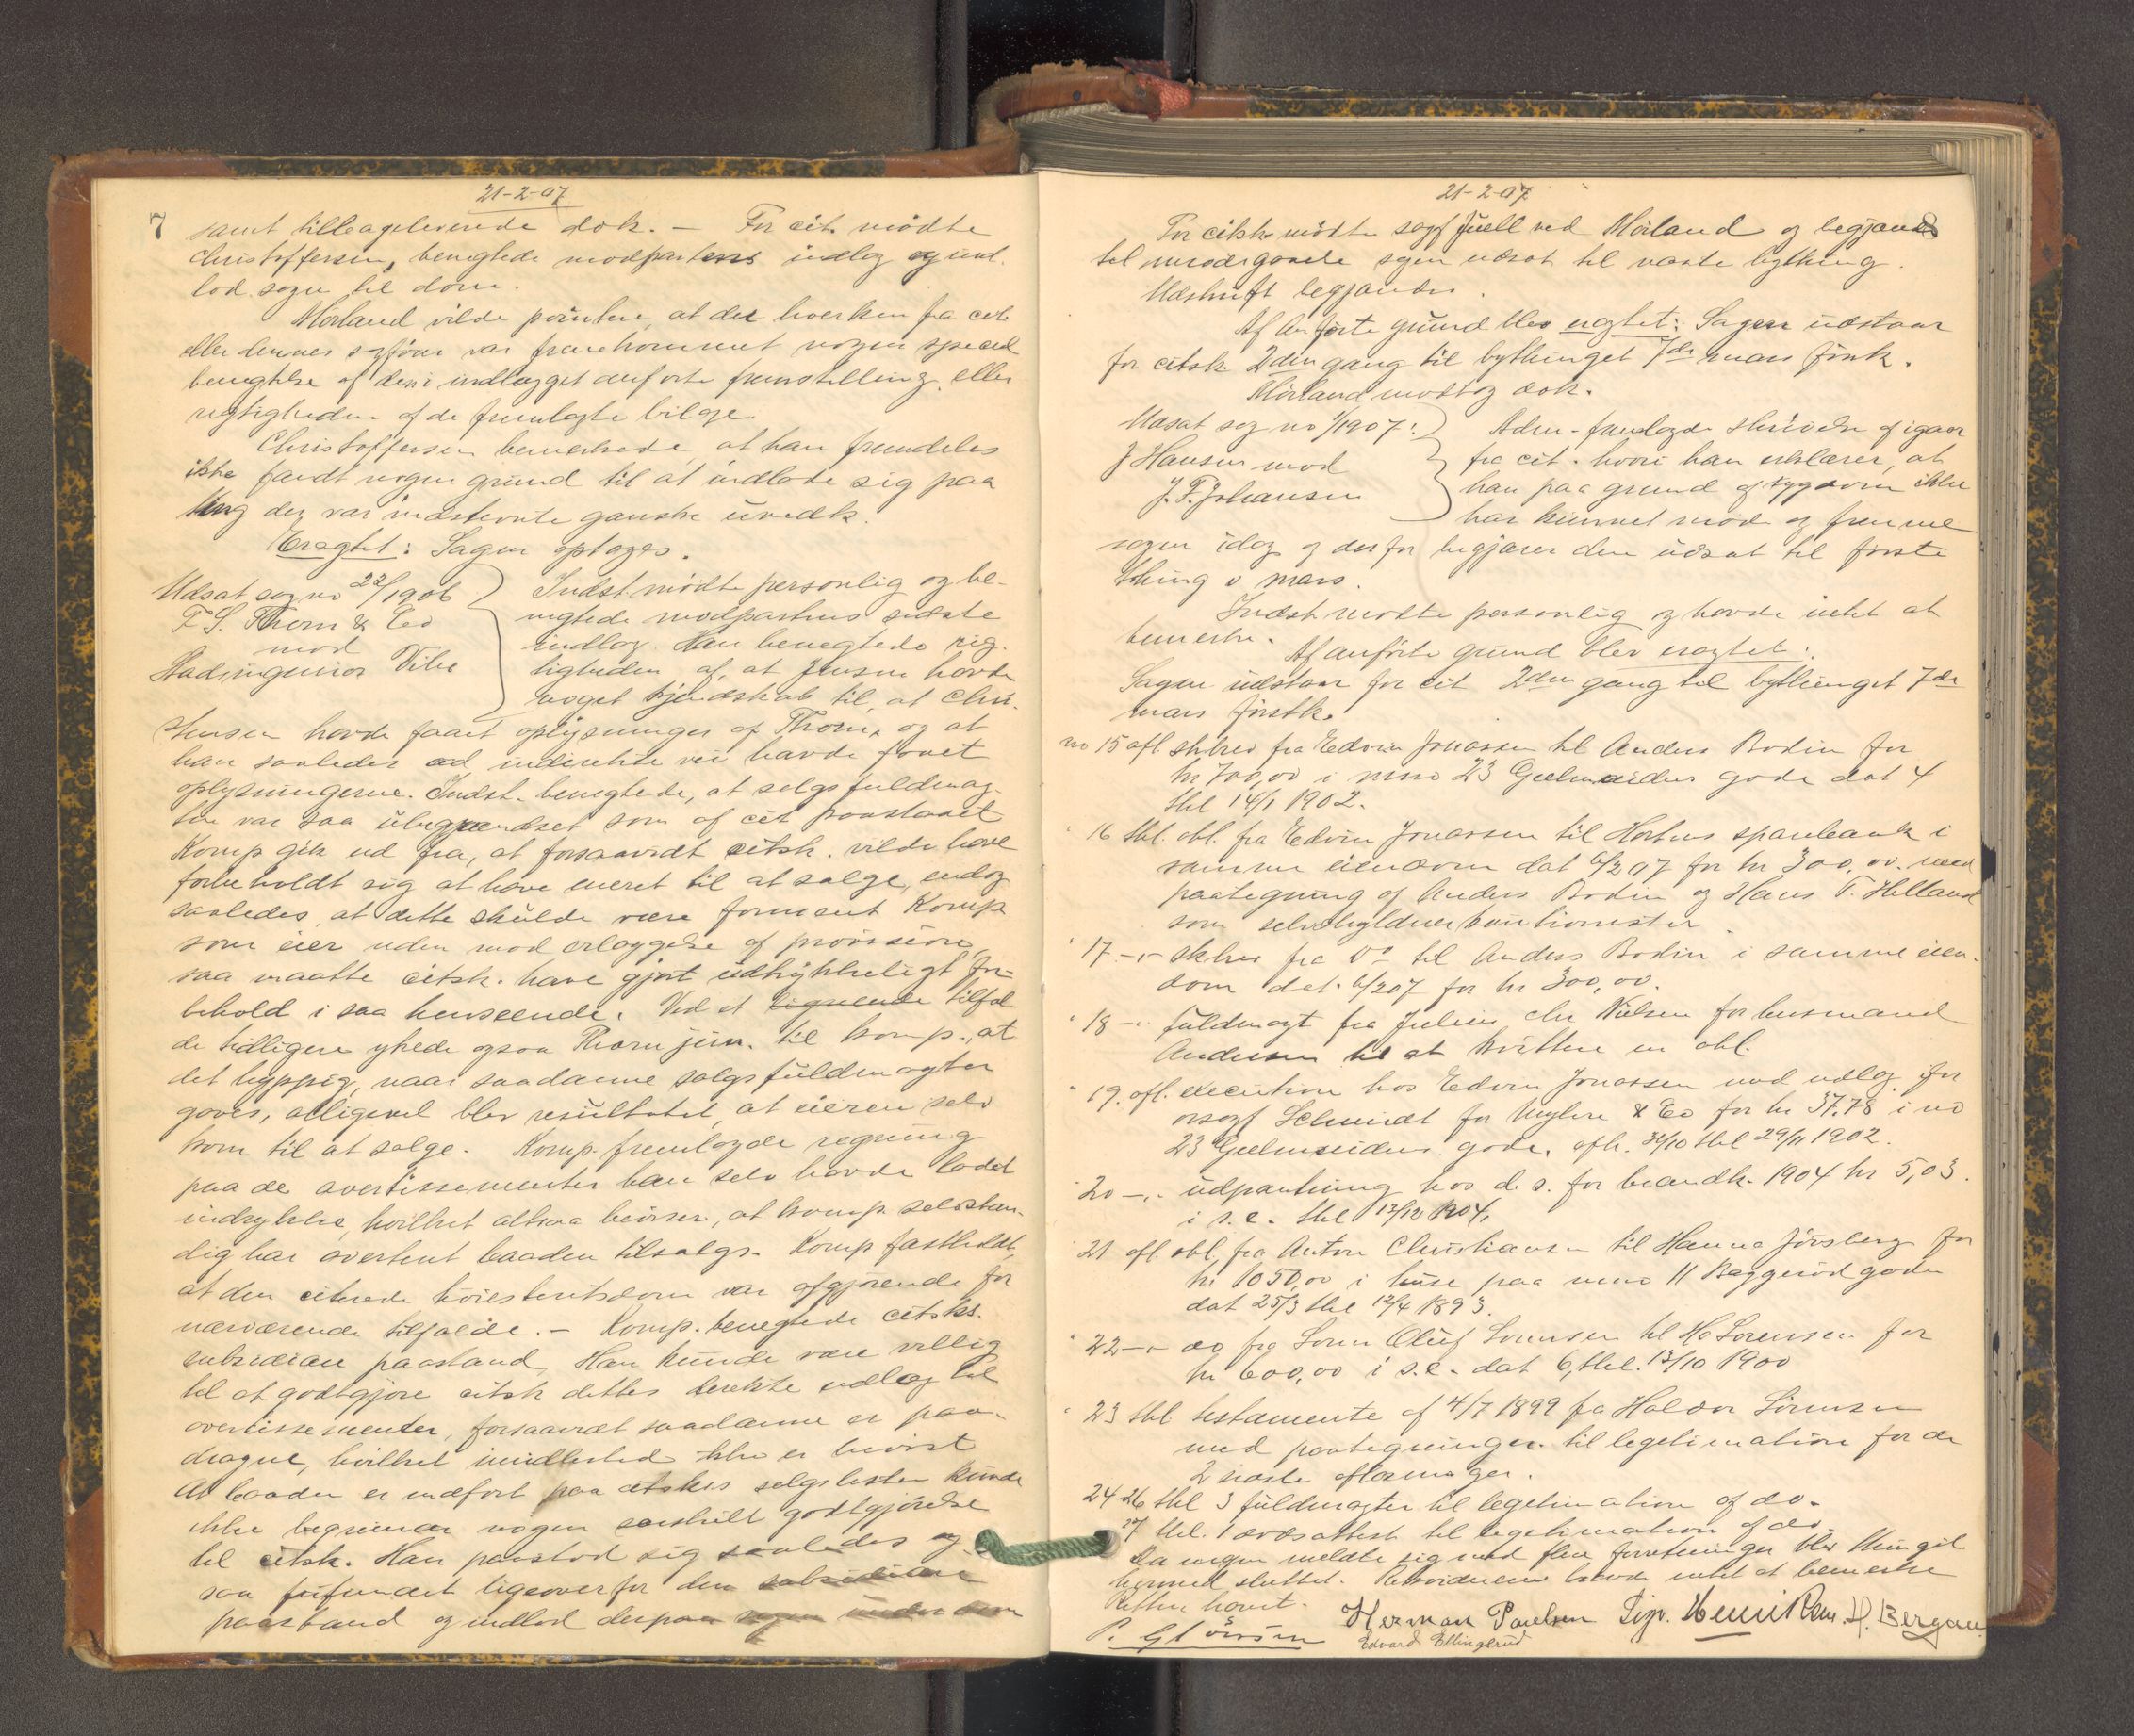 21-2-07
7 samt tilbageleverede dok. — For cit. mødte
Christoffersen, benegtede modpartens indlæg og ind-
lod sagen til dom.
Mørland vilde pointere, at der hverken fra cit.
eller dennes sagfører var fremkommet nogen speciel
benegtelse af den i indlægget anførte fremstilling eller
rigtigheden af de fremlagte bilage.
Christoffersen bemerkede, at han fremdeles
ikke fandt nogen grund til at indlade sig paa
ting der var indstevnte ganske uvedk.
Eragtet: Sagen optages.
Udsat sag no 22/1906
F. S. Thorn & Co
mod
Stadsingeniør Vibe
Indst. mødte personlig og be-
negtede modpartens sidste
indlæg. Han benegtede rig-
tigheden af, at Jensen havde
noget kjendskab til, at Chri-
stensen havde faaet oplysninger af Thorn, og at
han saaledes ad indirekte vei havde faaet
oplysningerne. Indst. benegtede, at salgsfuldmag-
ten var saa ubegrændset som af cit paastaaet
Komp gik ud fra, at forsaavidt citsk. vilde have
forbeholdt sig at have eneret til at sælge, endog
saaledes, at dette skulde være forment Komp
som eier uden mod erlæggelse af provision,
saa maatte citsk. have gjort udtrykkeligt for-
behold i saa henseende. Ved et lignende tilfæl
de tidligere ytrede ogsaa Thorn jun. til komp., at
det hyppig, naar saadanne salgsfuldmagter
gaves, alligevel blev resultatet, at eieren selv
kom til at sælge. Komp. fremlagde regning
paa de avertissementer han selv havde ladet
indrykke, hvilket altsaa beviser, at komp. selvstæn-
dig har avertert baaden tilsalgs. Komp fastholdt,
at den citerede høiesteretsdom var afgjørende for
nærværende tilfælde. — Komp. benegtede citsks.
subsidiære paastand. Han kunde være villig
til at godtgjøre citsk dettes direkte udlæg til
avertissementer, forsaavidt saadanne er paa-
dragne, hvilket imidlertid ikke er bevist
At baaden er indført paa citskes salgslister kunde
ikke begrunde nogen særskilt godtgjørelse
til citsk. Han paastod sig saaledes og-
saa frifundet ligeoverfor den subsidiære
paastand og indlod derpaa sagen under dom
21-2-07
For citsk mødte sagf Juell ved Mørland og begjærede
til mødegaaende sagen udsat til næste bything.
Udskrift begjæredes.
Af anførte grund blev eragtet: Sagen udstaar
for citsk 2den gang til bythinget 7de mars førstk.
Mørland modtog dok.
Udsat sag no 1/1907:
J Hansen mod
J. F. Johansen
Adm. fremlagde skrivelse af igaar
fra cit. hvori han erklærer, at
han paa grund af sygdom ikke
har kunnet møde og fremme
sagen idag og derfor begjærer den udsat til første
thing i mars.
Indst mødte personlig og havde intet at
bemerke.
Af anførte grund blev eragtet:
Sagen udstaar for cit 2den gang til bythinget 7de
mars førstk.
no 15 afl skbrev fra Edvin Jonassen til Anders Bodin for
kr 700,00 i mno 23 Gjelmeidens gade dat 4
thl 14/1 1902.
" 16 thl. obl. fra Edvin Jonassen til Hortens sparebank i
samme eiendom dat 6/2 07 for kr 300,00. med
paategning af Anders Bodin og Hans T. Helland
som selvskyldnerkautionister
" 17 -"- skbrev fra do til Anders Bodin i samme eien-
dom dat. 6/2 07 for kr 300,00.
" 18 -"- fuldmagt fra Julius Chr Nielsen for husmand
Andersen til at kvittere en obl.
" 19. afl. execution hos Edvin Jonassen med udlæg for
orsagf Schmidt for Meyhre & Co for kr 37.78 i no
23 Gjelmeidens gade. afh. 31/10 thl 29/11 1902.
" 20 -"- udpantning hos d. s. for brandk. 1904 kr 5,03.
i s. e. thl 13/12 1904.
" 21 afl. obl. fra Anton Christiansen til Hanna Jørsberg for
kr 1050,00 i huse paa mno 11 Baggerødgaden
dat 25/3 thl 12/4 1893.
" 22 -"- do fra Søren Oluf Sørensen til H. Sørensen for
kr 600,00 i s. e. dat 6, thl. 13/10 1900
" 23 thl testamente af 4/7 1899 fra Haldor Sørensen
med paategninger til legitimation for de
2 sidste aflæsninger.
24-26 thl 3 fuldmagter til legitimation af do.
27 thl. 1 dødsattest til legitimation af do
Da ingen meldte sig med flere forretninger blev thinget
hermed sluttet. Retsvidnerne havde intet at bemerke
Retten hævet.
Herman Paulsen H. Bergan
Edvard Ellingsrud